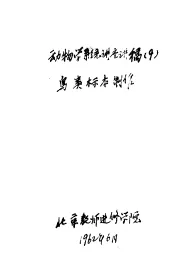 动物学系统讲座讲稿(9)
鸟类标本制作
北京教师进修学院
1962年6月